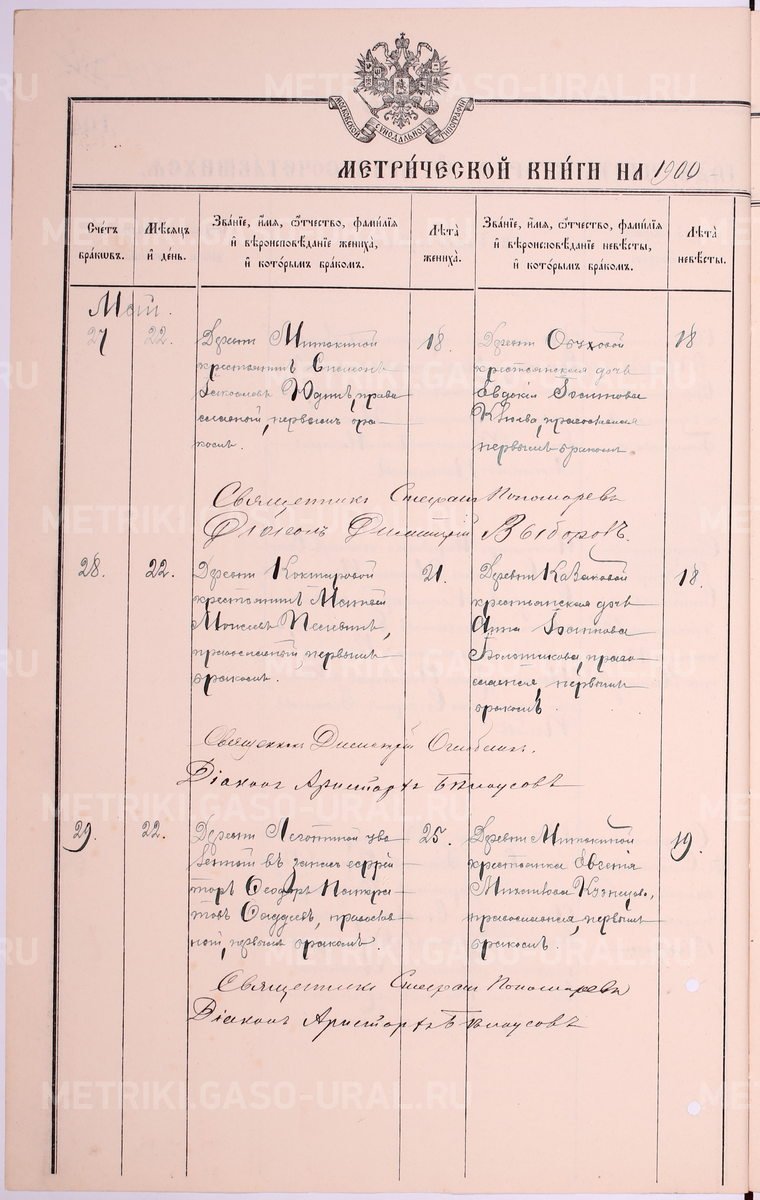 МОСКОВСКОЙ СѴНОДАЛЬНОЙ ТИПОГРАФІИ
МЕТРИ́ЧЕСКОЙ КНИ́ГИ НА 1900
Сче́тъ бра́ковъ.
Мѣ́сяцъ и҆ де́нь.
Зва́ніе, и҆́мя, ѻ҆́тчество, фами́лія и҆ вѣроисповѣ́даніе жениха̀, и҆ кото́рымъ бра́комъ.
Лѣ́та жениха̀.
Зва́ніе, и҆́мя, ѻ҆́тчество, фами́лія и҆ вѣроисповѣ́даніе невѣ́сты, и҆ кото́рымъ бра́комъ.
Лѣ́та невѣ́сты.
Май.
27
22.
Деревни Митькиной
крестьянинъ Симеонъ
Юдинъ, право
славной, первымъ бра-
комъ.
18.
Деревни Обуховой
крестьянская дочь
Евдокія
православная
первымъ бракомъ.
18
Священникъ Стефанъ Пономаревъ
Діаконъ Димитрій Выборовъ.
28.
22.
Деревни
крестьянинъ Матвей
Моисеевъ
православный, первымъ
бракомъ.
21.
Деревни Казаковой
крестьянская дочь
Анна
Болотникова, право-
славная, первымъ
бракомъ.
18.
Священникъ Димитрій
Діаконъ Аристархъ Бѣлоусовъ
29.
22.
Деревни уво
ленной въ запасъ ефрей
торъ Ѳеодоръ Панкра-
товъ православ-
ной, первымъ бракомъ.
25.
Деревни Митькиной
крестьянка Евгенія
Кузнецова,
православная, первымъ
бракомъ.
19.
Священникъ Стефанъ Пономаревъ
Діаконъ Аристархъ Бѣлоусовъ
METRIKI.GASO-URAL.RU